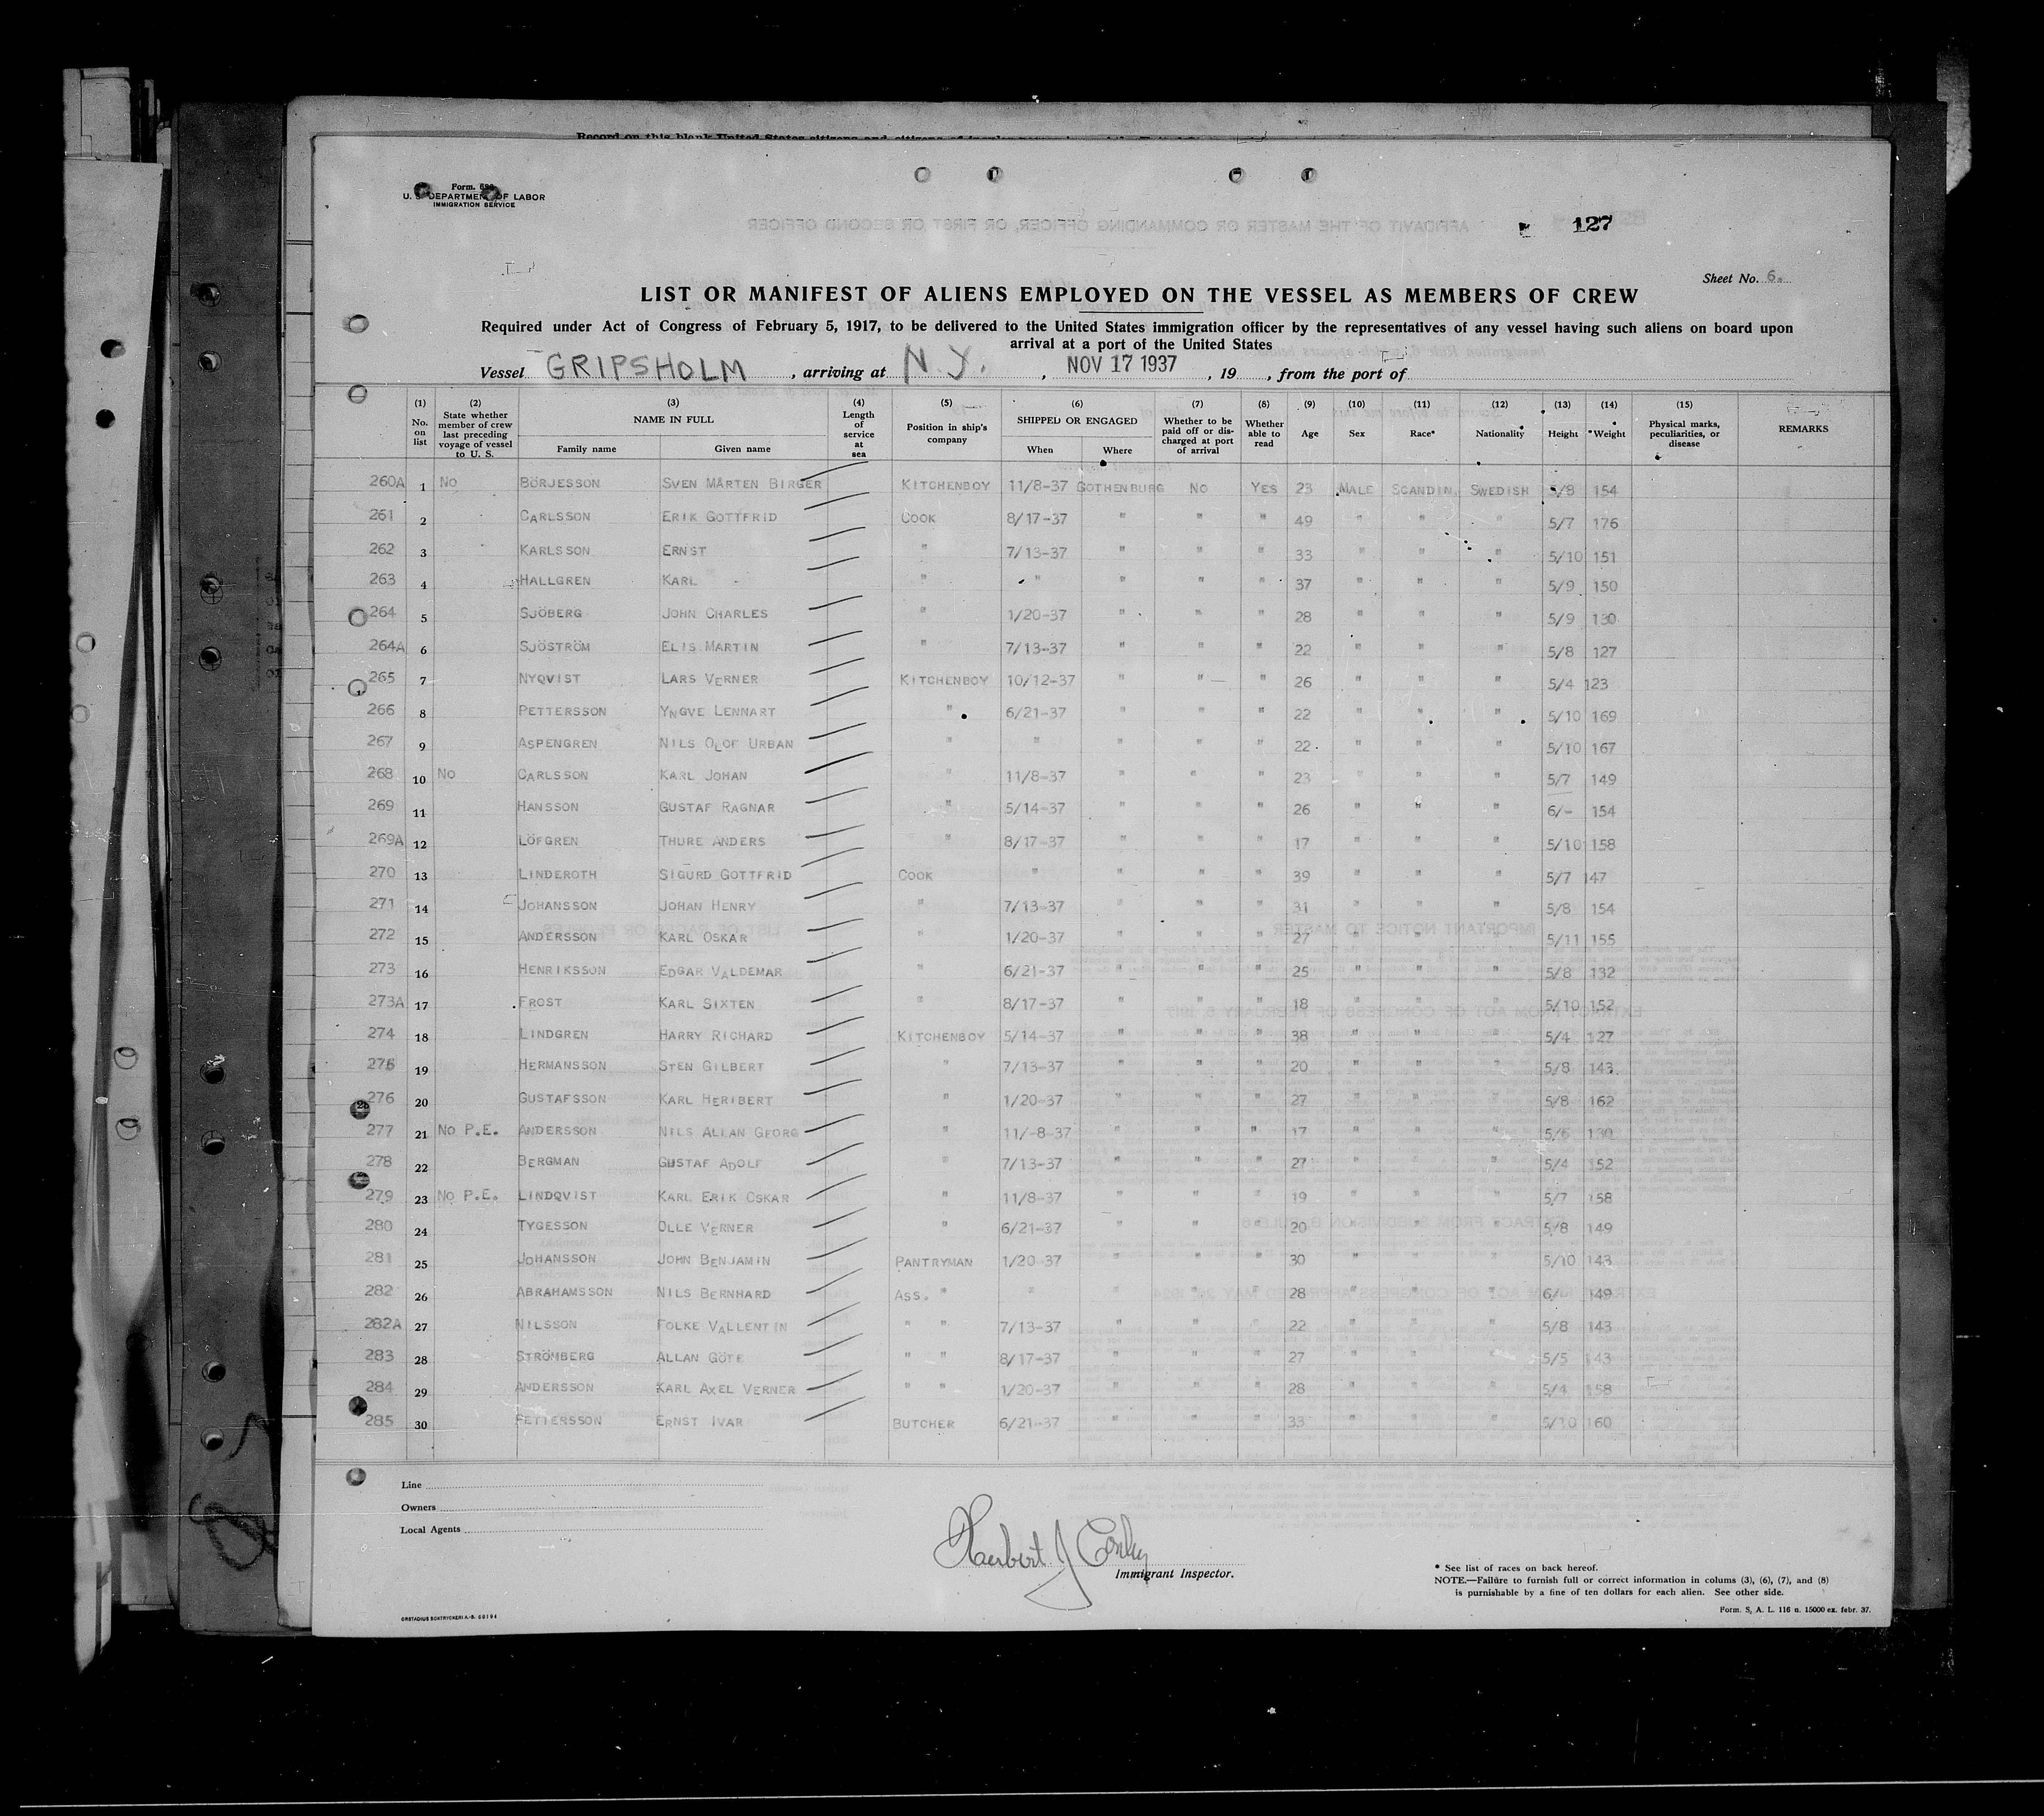 Form. 680
U. S. DEPARTMENT OF LABOR
IMMIGRATION SERVICE
127
Sheet No. 6.
LIST OR MANIFEST OF ALIENS EMPLOYED ON THE VESSEL AS MEMBERS OF CREW
Required under Act of Congress of February 5, 1917, to be delivered to the United States immigration officer by the representatives of any vessel having such aliens on board upon
arrival at a port of the United States
Vessel GRIPSHOLM, arriving at N.Y., NOV 17 1937, 19, from the port of
(1) No. on list (2) State whether member of crew last preceding voyage of vessel to U. S. (3) NAME IN FULL Family name Given name (4) Length of service at sea (5) Position in ship's company (6) SHIPPED OR ENGAGED When Where (7) Whether to be paid off or discharged at port of arrival (8) Whether able to read (9) Age (10) Sex (11) Race* (12) Nationality (13) Height (14) Weight (15) Physical marks, peculiarities, or disease REMARKS
260A 1 No BÖRJESSON SVEN MÅRTEN BIRGER KITCHENBOY 11/8-37 GOTHENBURG NO YES 23 MALE SCANDIN. SWEDISH 5/8 154
261 2 CARLSSON ERIK GOTTFRID COOK 8/17-37 " " " 49 " " " 5/7 176
262 3 KARLSSON ERNST " 7/13-37 " " " 33 " " " 5/10 151
263 4 HALLGREN KARL " " " " " 37 " " " 5/9 150
264 5 SJÖBERG JOHN CHARLES " 1/20-37 " " " 28 " " " 5/9 130
264A 6 SJÖSTRÖM ELIS MARTIN " 7/13-37 " " " 22 " " " 5/8 127
265 7 NYQVIST LARS VERNER KITCHENBOY 10/12-37 " " " 26 " " " 5/4 123
266 8 PETTERSSON YNGVE LENNART " 6/21-37 " " " 22 " " " 5/10 169
267 9 ASPENGREN NILS OLOF URBAN " " " " " 22 " " " 5/10 167
268 10 No CARLSSON KARL JOHAN " 11/8-37 " " " 23 " " " 5/7 149
269 11 HANSSON GUSTAF RAGNAR " 5/14-37 " " " 26 " " " 6/- 154
269A 12 LÖFGREN THURE ANDERS " 8/17-37 " " " 17 " " " 5/10 158
270 13 LINDEROTH SIGURD GOTTFRID COOK " " " " 39 " " " 5/7 147
271 14 JOHANSSON JOHAN HENRY " 7/13-37 " " " 31 " " " 5/8 154
272 15 ANDERSSON KARL OSKAR " 1/20-37 " " " 27 " " " 5/11 155
273 16 HENRIKSSON EDGAR VALDEMAR " 6/21-37 " " " 25 " " " 5/8 132
273A 17 FROST KARL SIXTEN " 8/17-37 " " " 18 " " " 5/10 152
274 18 LINDGREN HARRY RICHARD KITCHENBOY 5/14-37 " " " 38 " " " 5/4 127
275 19 HERMANSSON STEN GILBERT " 7/13-37 " " " 20 " " " 5/8 143
276 20 GUSTAFSSON KARL HERIBERT " 1/20-37 " " " 27 " " " 5/8 162
277 21 No P.E. ANDERSSON NILS ALLAN GEORG " 11/-8-37 " " " 17 " " " 5/6 130
278 22 BERGMAN GUSTAF ADOLF " 7/13-37 " " " 27 " " " 5/4 152
279 23 No P.E. LINDQVIST KARL ERIK OSKAR " 11/8-37 " " " 19 " " " 5/7 158
280 24 TYGESSON OLLE VERNER " 6/21-37 " " " 20 " " " 5/8 149
281 25 JOHANSSON JOHN BENJAMIN PANTRYMAN 1/20-37 " " " 30 " " " 5/10 143
282 26 ABRAHAMSSON NILS BERNHARD ASS. " " " " " 28 " " " 6/- 149
282A 27 NILSSON FOLKE VALLENTIN " " 7/13-37 " " " 22 " " " 5/8 143
283 28 STRÖMBERG ALLAN GÖTE " " 8/17-37 " " " 27 " " " 5/5 143
284 29 ANDERSSON KARL AXEL VERNER " " 1/20-37 " " " 28 " " " 5/4 158
285 30 PETTERSSON ERNST IVAR BUTCHER 6/21-37 " " " 33 " " " 5/10 160
Line
Owners
Local Agents
Herbert J Conley
Immigrant Inspector.
* See list of races on back hereof.
NOTE.—Failure to furnish full or correct information in colums (3), (6), (7), and (8)
is punishable by a fine of ten dollars for each alien. See other side.
ORSTADIUS BOKTRYCKERI A.-B. 60194
Form. S. A. L. 116 a. 15000 ex. febr. 37.